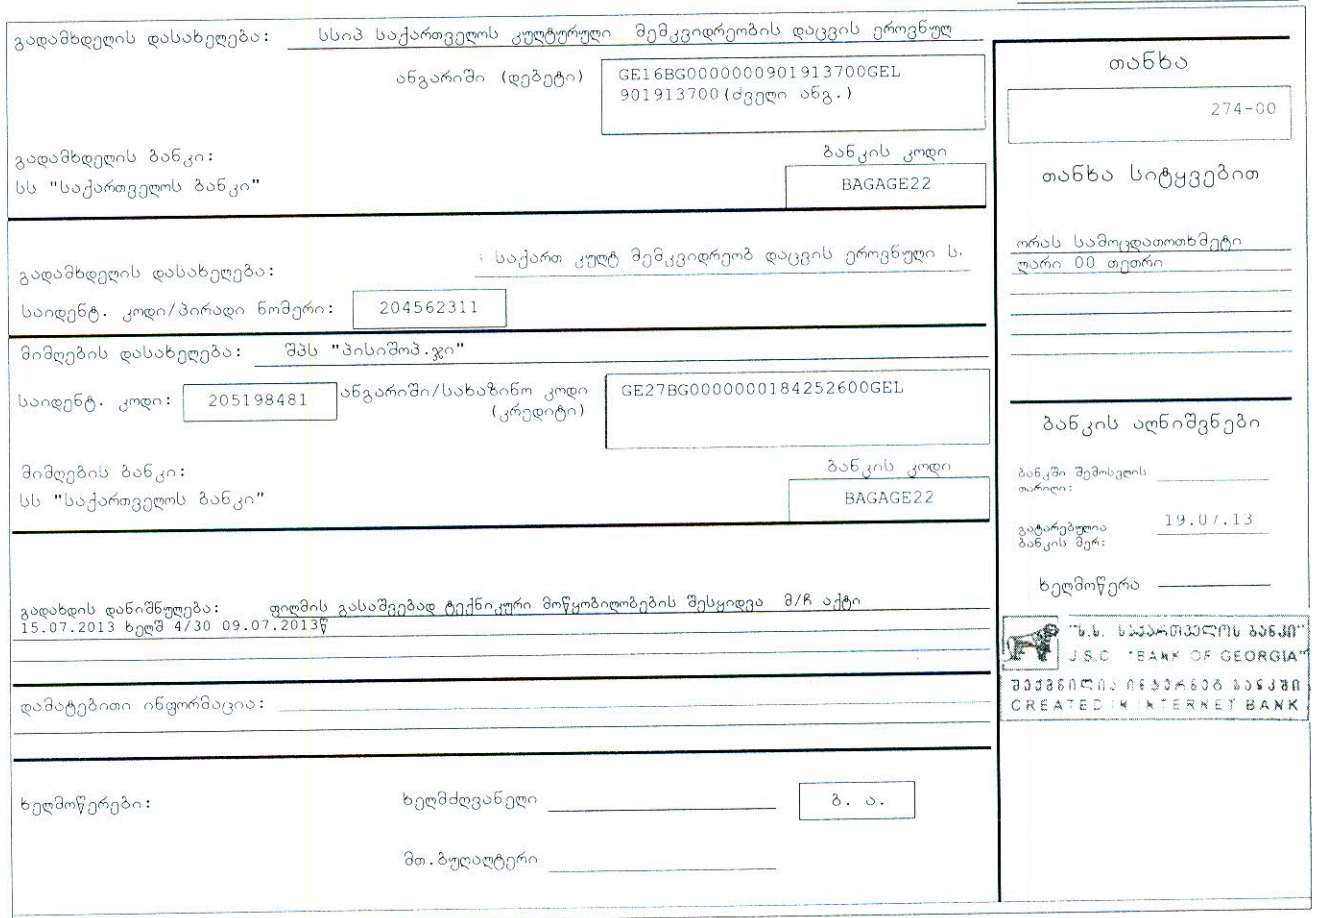 გადამხდელის დასახელება: სსიპ საქართველოს კულტურული მემკვიდრეობის დაცვის ეროვნულ
ანგარიში (დებეტი) GE16BG0000000901913700GEL
901913700(ძველი ანგ.)
გადამხდელის ბანკი: ბანკის კოდი
სს "საქართველოს ბანკი" BAGAGE22
გადამხდელის დასახელება: : საქართ კულტ მემკვიდრეობ დაცვის ეროვნული ს.
საიდენტ. კოდი/პირადი ნომერი: 204562311
მიმღების დასახელება: შპს "პისიშოპ.ჯი"
საიდენტ. კოდი: 205198481 ანგარიში/სახაზინო კოდი GE27BG0000000184252600GEL
(კრედიტი)
მიმღების ბანკი: ბანკის კოდი
სს "საქართველოს ბანკი" BAGAGE22
გადახდის დანიშნულება: ფილმის გასაშვებად ტექნიკური მოწყობილობების შესყიდვა მ/ჩ აქტი
15.07.2013 ხელშ 4/30 09.07.2013წ
დამატებითი ინფორმაცია:
ხელმოწერები: ხელმძღვანელი ბ. ა.
მთ.ბუღალტერი
თანხა
274-00
თანხა სიტყვებით
ორას სამოცდათოთხმეტი
ლარი 00 თეთრი
ბანკის აღნიშვნები
ბანკში შემოსვლის
თარიღი:
გატარებულია 19.07.13
ბანკის მერ:
ხელმოწერა
"ს.ს. საქართველოს ბანკი"
J.S.C. "BANK OF GEORGIA"
შექმნილია ინტერნეტ ბანკში
CREATED IN INTERNET BANK